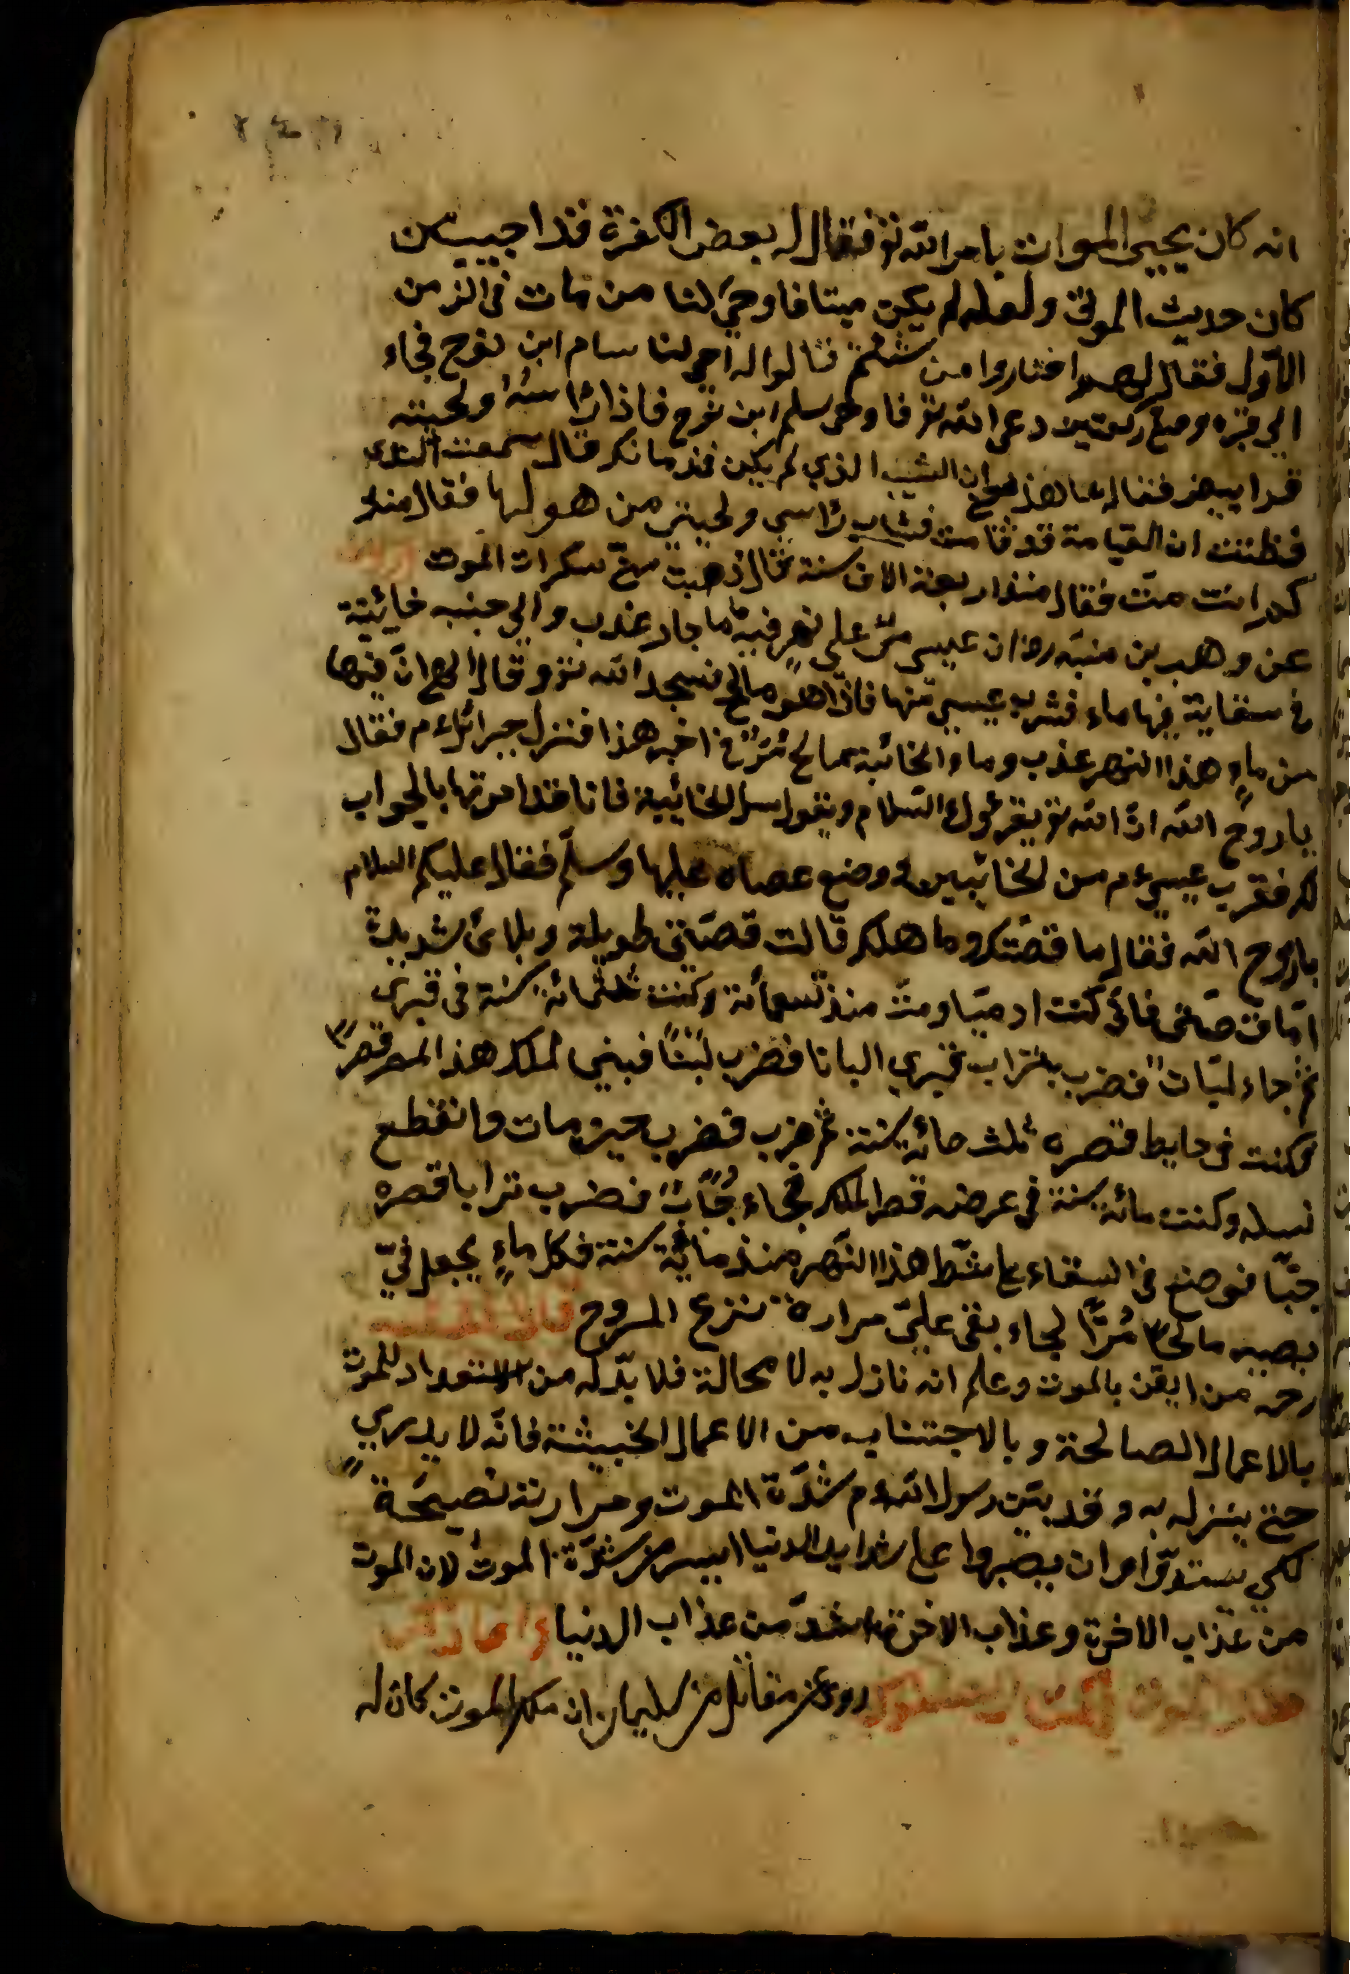 انه كان يحيى الموات بامر الله تع فقال له بعض الكفرة قد احييت من
كان حديث الموت ولعله لم يكن ميتا فاحي لنا من مات في الزمن
الأول فقال لهم اختاروا من شئتم قالوا له احي لنا سام ابن نوح فجاء
الى قبره وصلى ركعتين ودعى الله تع فاحي سام ابن نوح فاذا رأسه ولحيته
قد ابيض فقال ما هذا الشيب الذي لم يكن في زمانك قال سمعت النداء
فظننت ان القيامة قد قامت فشاب رأسي ولحيتي من هولها فقال منذ
كم انت مت فقال منذ اربعة الاف سنة فما ذهبت عني سكرات الموت وروى
عن وهب بن منبه رض ان عيسى مر على نهر فيه ماء جار عذب والى جنبه خابئة
في سقاية فيها ماء فشرب عيسى منها فاذا هو مالح فسجد الله تع وقال الهي ان فيها
من ماء هذا النهر عذب وماء الخابئة مالح اخبر هذا فنزل جبرائل ع م فقال
يا روح الله ان الله تع يقرئوك السلام ويقول سل الخابئة فانا قد امرتها بالجواب
لك فقرب عيسى ع م من الخابئين ووضع عصاه عليها وسلم فقال عليكم السلام
يا روح الله فقال ما قصتك وما هلك قالت قصتي طويلة وبلائى شديدة
اما قصتي فاني كنت ادميا ومت منذ تسعمائة وكنت ثلثمائة سنة في قبري
ثم جاء لبان فضرب بتراب قبري البانا فضرب لبنا فبني لملك هذا المصر قصرا
فكنت في حايط قصره ثلث مائة سنة ثم خرب قصره حين مات وانقطع
نسله وكنت مائة سنة في عرض قصر الملك فجاء فضرب ترابا قصره
جبا فوضع في السقاء على شط هذا النهر منذ مائة سنة فكل ماء يجعل في
يصير مالحا مرا لجاء بقى علي مرارة نزع الروح قال الفقيه
رحه من ايقن بالموت وعلم انه نازل به لا محالة فلا بد له من الاستعداد للموت
بالاعمال الصالحة وبالاجتناب من الاعمال الخبيثة فانه لا يدري
حتى ينزل به وقد بين رسول الله ع م شدة الموت ومرارته نصيحة
لكي يستعدوا وان يصبروا على شدايد الدنيا ايسر من شدة الموت لان الموت
من عذاب الاخرة وعذاب الاخرة اشد من عذاب الدنيا
روى عن مقاتل من سليمان ان ملك الموت كان له